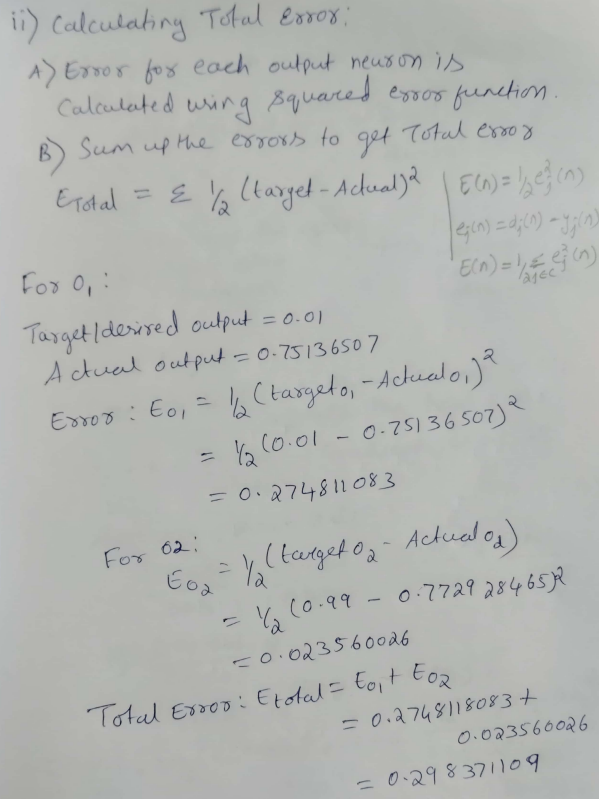 ii) Calculating Total Error:
A) Error for each output neuron is
Calculated using squared error function.
B) Sum up the errors to get Total error
E_Total = Σ 1/2 (target - Actual)²
E(n) = 1/2 e_j²(n)
e_j(n) = d_j(n) - y_j(n)
E(n) = 1/2 Σ_{j∈C} e_j²(n)
For O₁:
Target/desired output = 0.01
Actual output = 0.75136507
Error : E_O₁ = 1/2 (target_O₁ - Actual_O₁)²
= 1/2 (0.01 - 0.75136507)²
= 0.274811083
For O2:
E_O₂ = 1/2 (target O₂ - Actual O₂)
= 1/2 (0.99 - 0.772928465)²
= 0.023560026
Total Error : E total = E_O₁ + E_O₂
= 0.2748118083 +
0.023560026
= 0.298371109